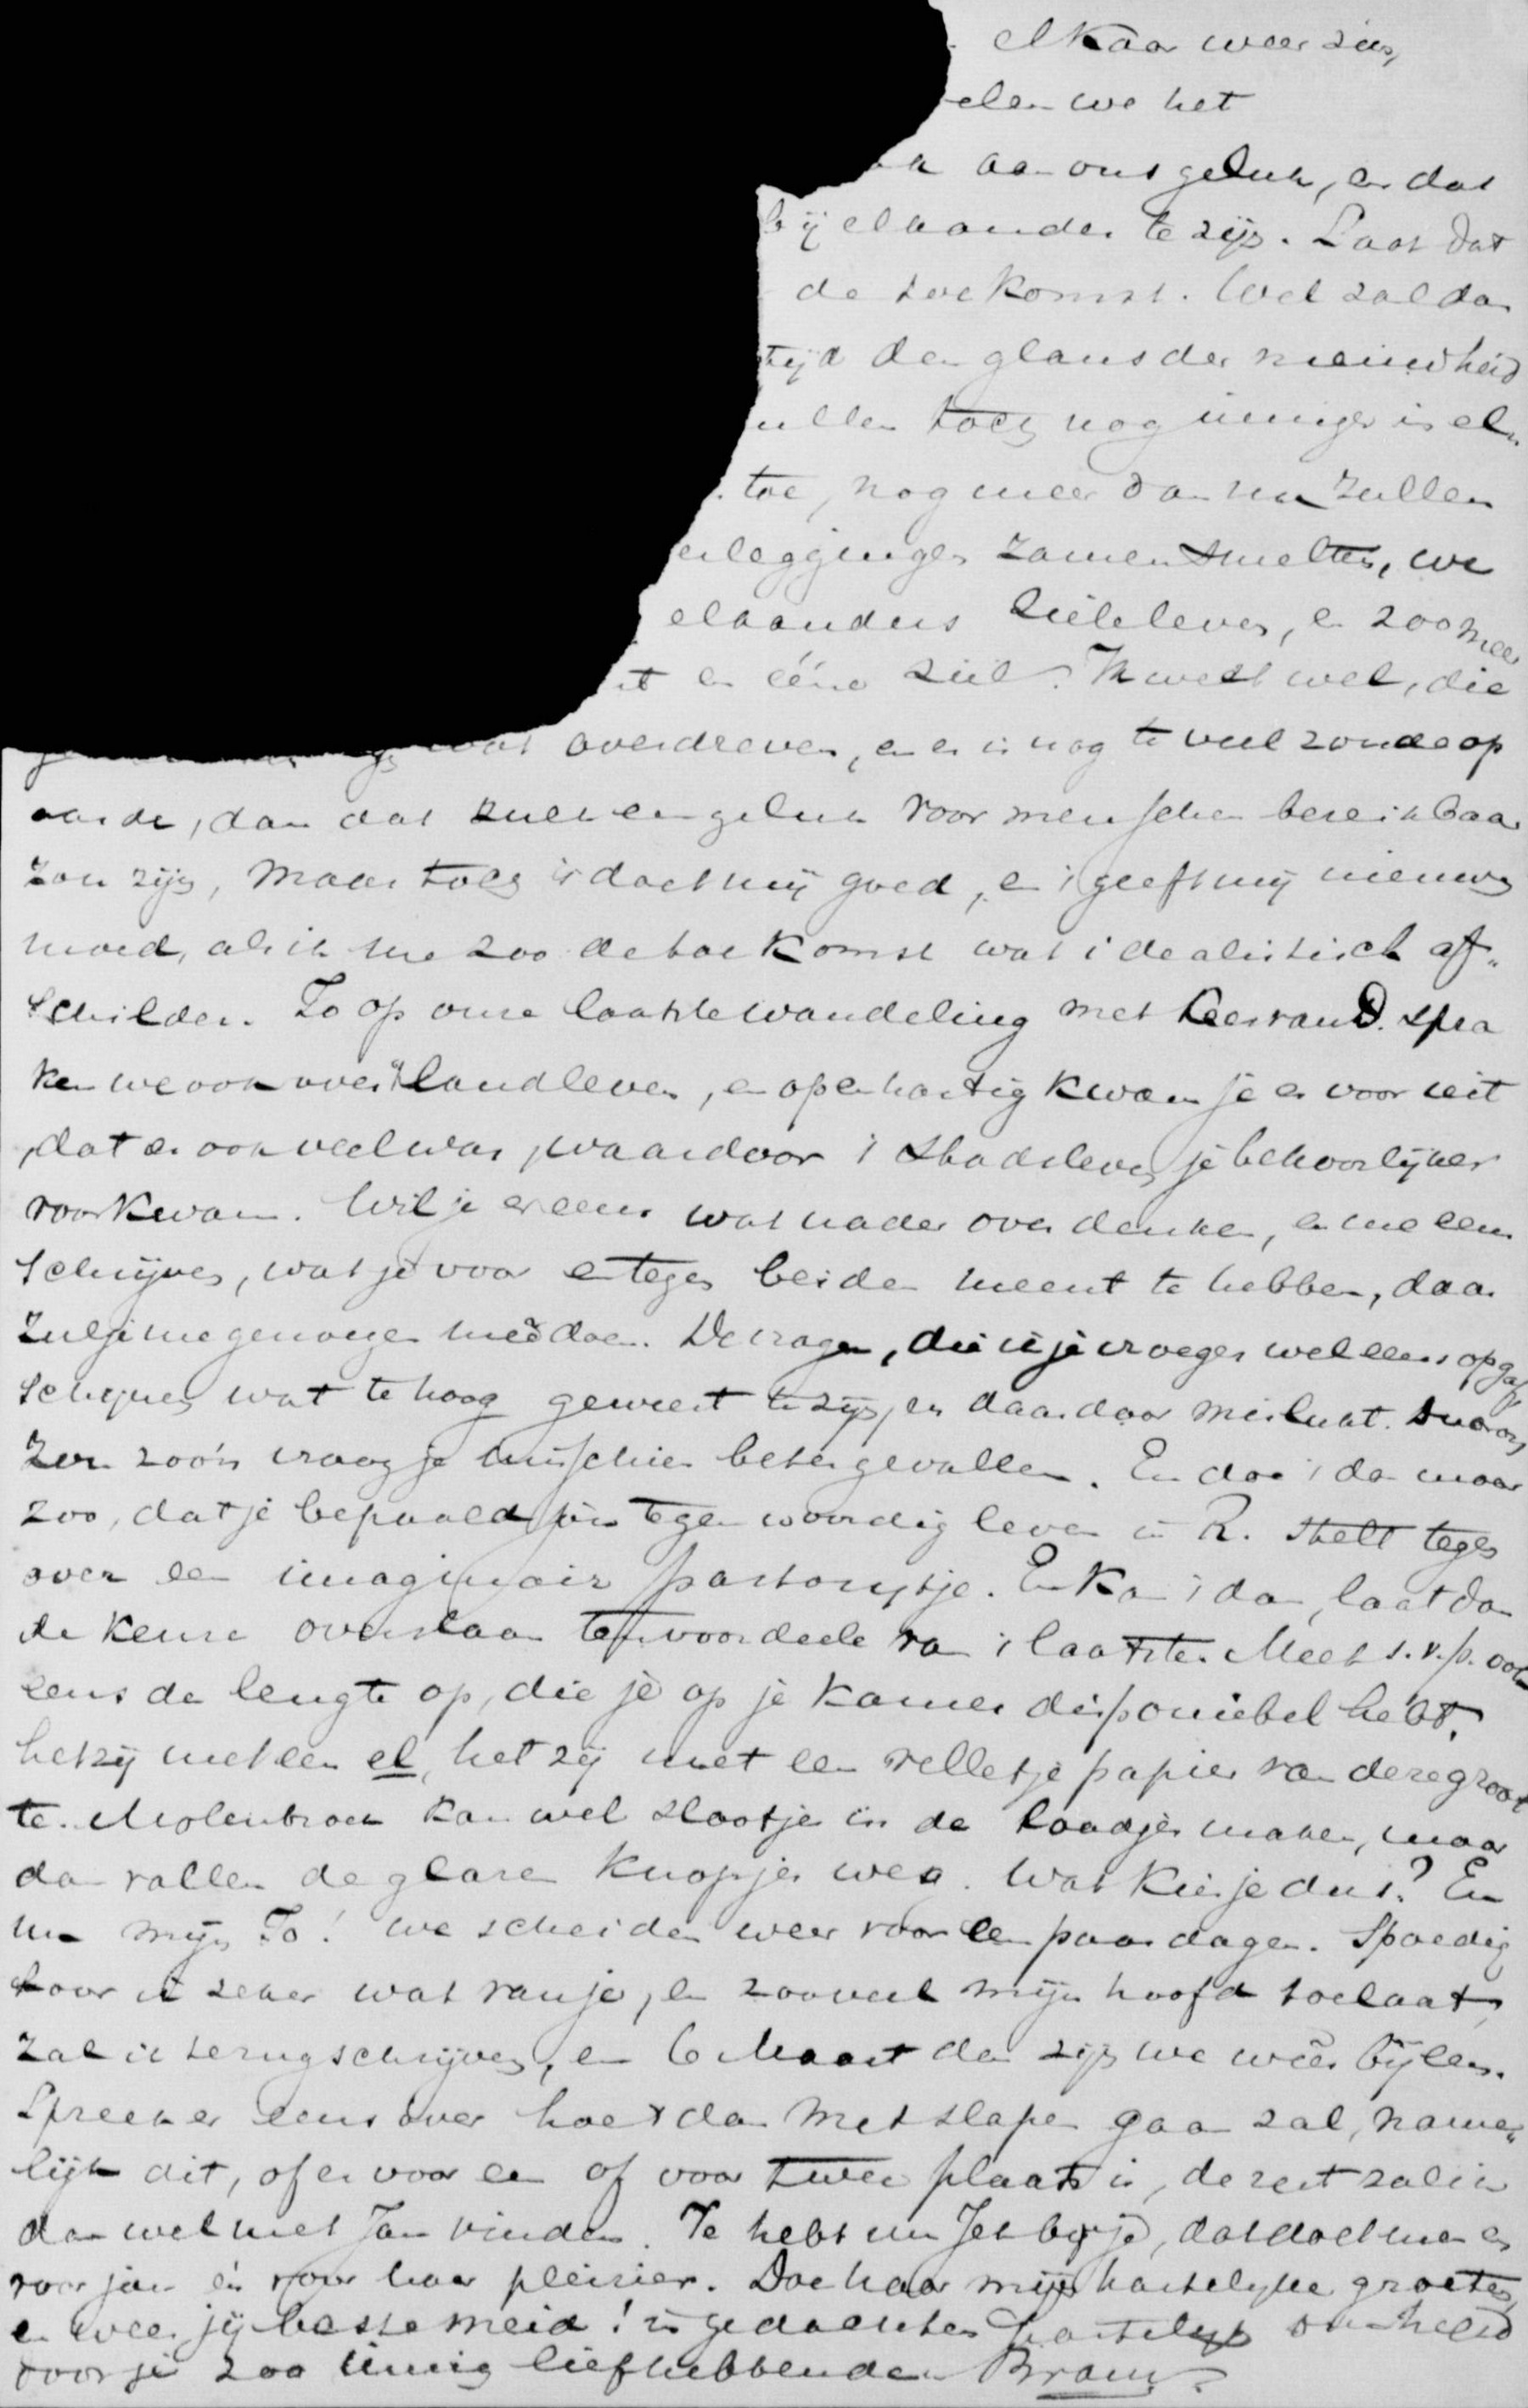 elkaar weer zien,
elen we het
aan ons geluk, en dat
bij elkander te zijn. Laat dat
de toekomst. Wel zal dan
tijd den glans der nieuwheid
ullen toch nog inniger in el„
toe, nog meer dan nu zullen
erleggingen zamensmelten, we
elkanders zieleleven, en zoo meer
t en ééne ziel. Ik weet wel, die
wat overdreven, en er is nog te veel zonde op
aarde, dan dat zulk een geluk voor menschen bereikbaar
zou zijn, maar toch is doet mij goed, en 't geeft mij nieuwen
moed, als ik me zoo de toekomst wat idealistisch af„
schilder. To op onze laatste wandeling met Cees van D. spra
ken we ook over 't landleven, en openhartig kwam je er voor uit
, dat er ook veel was, waardoor 't stadsleven je bekoorlijker
voorkwam. Wil je er eens wat nader over denken, en me eens
schrijven, wat je voor en tegen beiden meent te hebben, daar
zul je me genoegen meê doen. De vragen, die ik je vroeger wel eens opgaf
schijnen wat te hoog geweest te zijn, en daardoor mislukt.
zoo'n vraag je misschien beter gevallen. En doe 't dan maar
zoo, dat je bepaald je tegenwoordig leven in R. stelt tegen
over een imaginair pastorijtje. En kan 't dan, laat dan
de keuze overslaan ten voordeele van 't laatste. Meet s.v.p. ook
eens de lengte op, die je op je kamer disponibel hebt,
hetzij met een el, hetzij met een velletje papier van deze groot
te. Molenbroek kan wel slootjes in de laadjes maken, maar
dan vallen de glazen knopjes weg. Wat kies je dus? En
nu mijn To! we scheiden weer voor een paar dagen. Spoedig
hoor ik zeker wat van je, en zooveel mijn hoofd toelaat,
zal ik terugschrijven, en 6 Maart dan zijn we weêr bijeen.
Spreek er eens over hoe 't dan met slapen gaan zal, name„
lijk dit, of er voor een of voor twee plaats is, de rest zal ik
dan wel met Jan vinden. Je hebt nu Jet bij je, dat doet me en
voor jou én voor haar pleizier. Doe haar mijn hartelijke groeten
en wees jij beste meid! in gedachten hartelijk omhelsd
door je zoo innig liefhebbenden Bram.